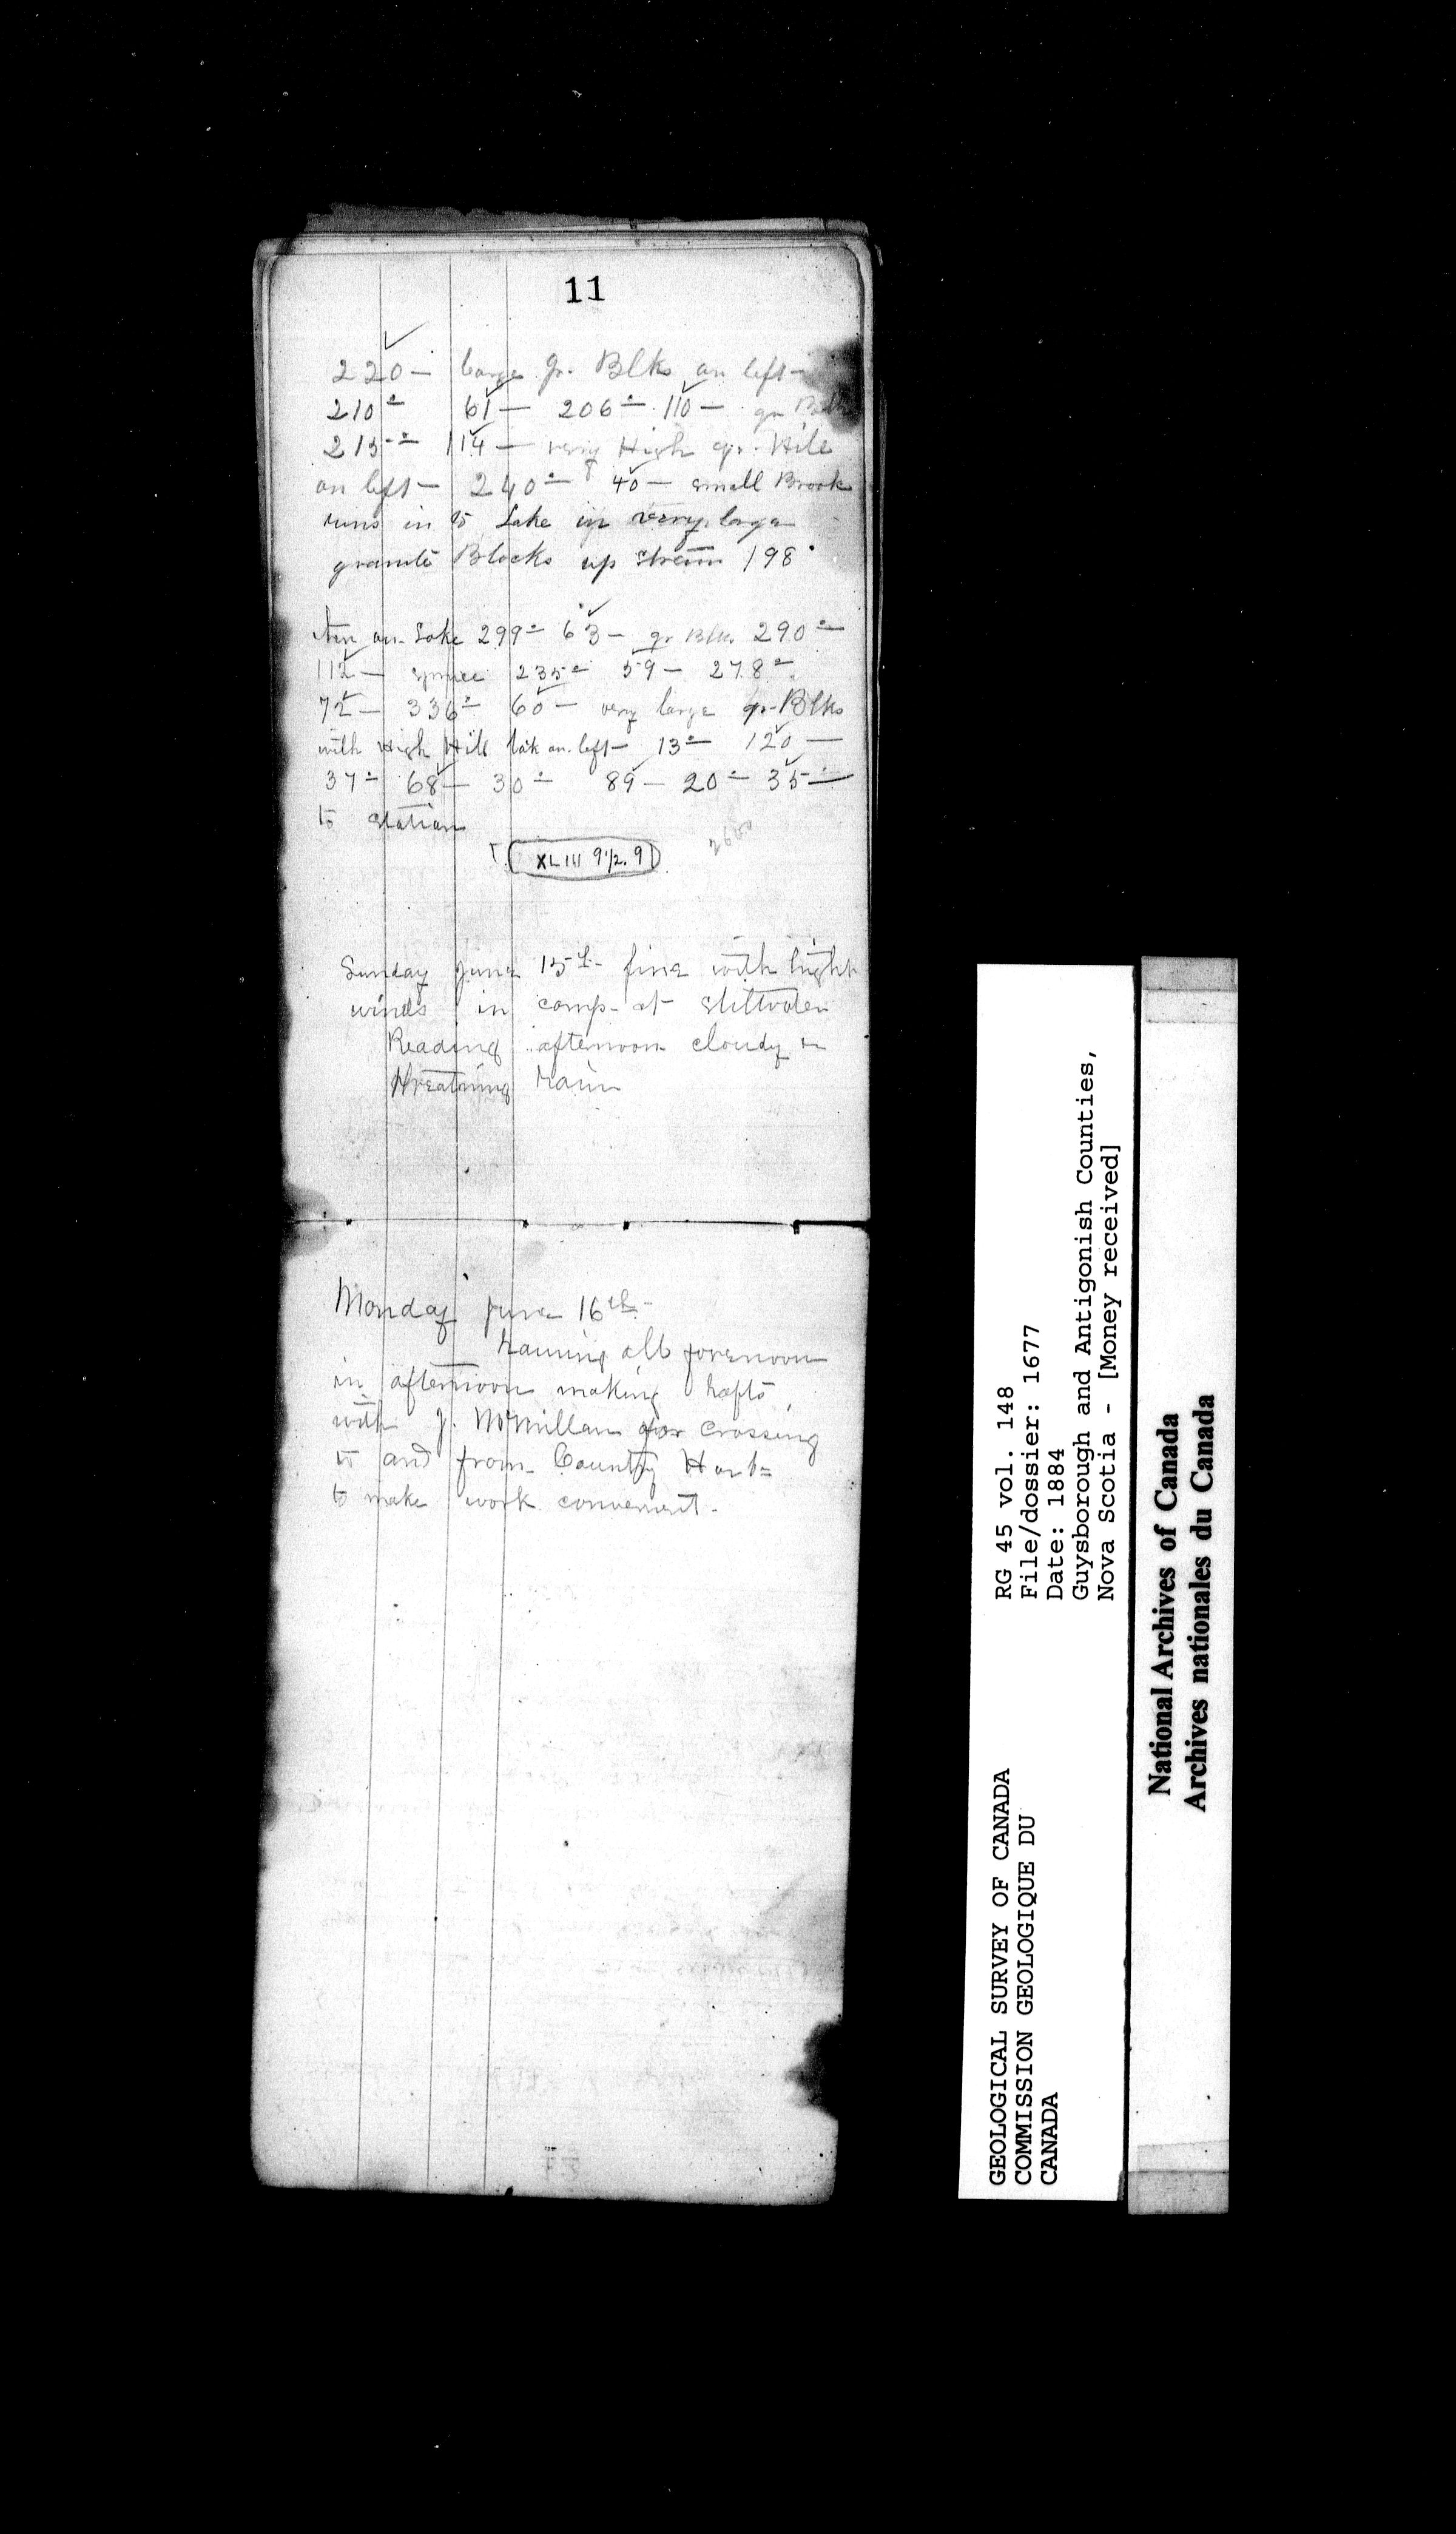 11
220 — large gr. Blks on left —
210° 61 — 206° 110 — gr Blks
215° 114 — very High gr. Hill
on left — 240° 40 — small Brook
runs in to Lake in very large
granite Blocks up stream 198°
on Lake 299° 63 — gr Blks 290°
112 — spruce 235° 59 — 278°
72 — 336° 60 — very large gr. Blks
with High Hill on left — 13° 120 —
37° 68 — 30° 89 — 20° 35 —
to station
XLIII 9 1/2. 9
2600
Sunday June 15th fine with light
winds in camp at stillwater
Reading afternoon cloudy
threatning rain
Monday June 16th
raining all forenoon
in afternoon making rafts
with J. McMillan for crossing
to and from Country Harb=
to make work convenient.
GEOLOGICAL SURVEY OF CANADA
COMMISSION GEOLOGIQUE DU
CANADA
RG 45 vol. 148
File/dossier: 1677
Date: 1884
Guysborough and Antigonish Counties,
Nova Scotia - [Money received]
National Archives of Canada
Archives nationales du Canada